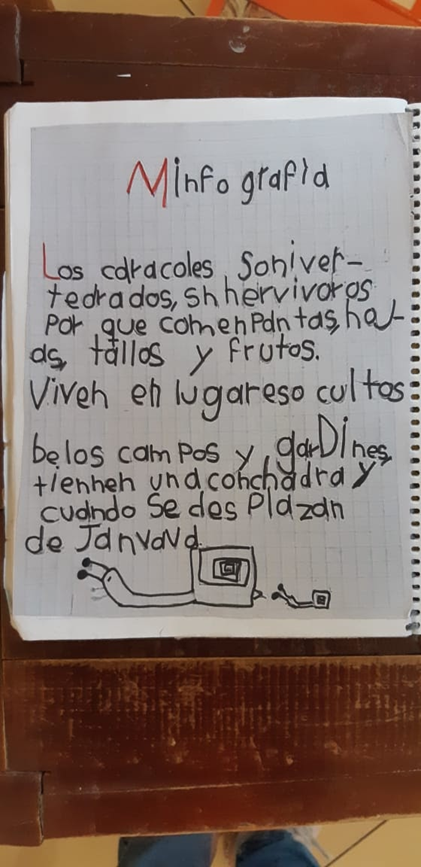 Minfografia
Los caracoles, Soniver-
tedrados, sh hervivoros
Por que comen Pantas, hoj-
as, tallos y frutos.
Viven en lugareso cultos
belos campos y garDines,
tienneh una conchadra y
cuando Se des Plazan
de Janvava.